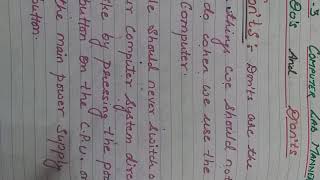 -3 COMPUTER LAB MANNER
DO'S AND DON'TS
ON'TS : Don'ts are the
things we should not
do when we use the
Computer.
We should never switch o
ur Computer System dire
ke by pressing the po
button on the C.P.U. or
the main power supply
button.